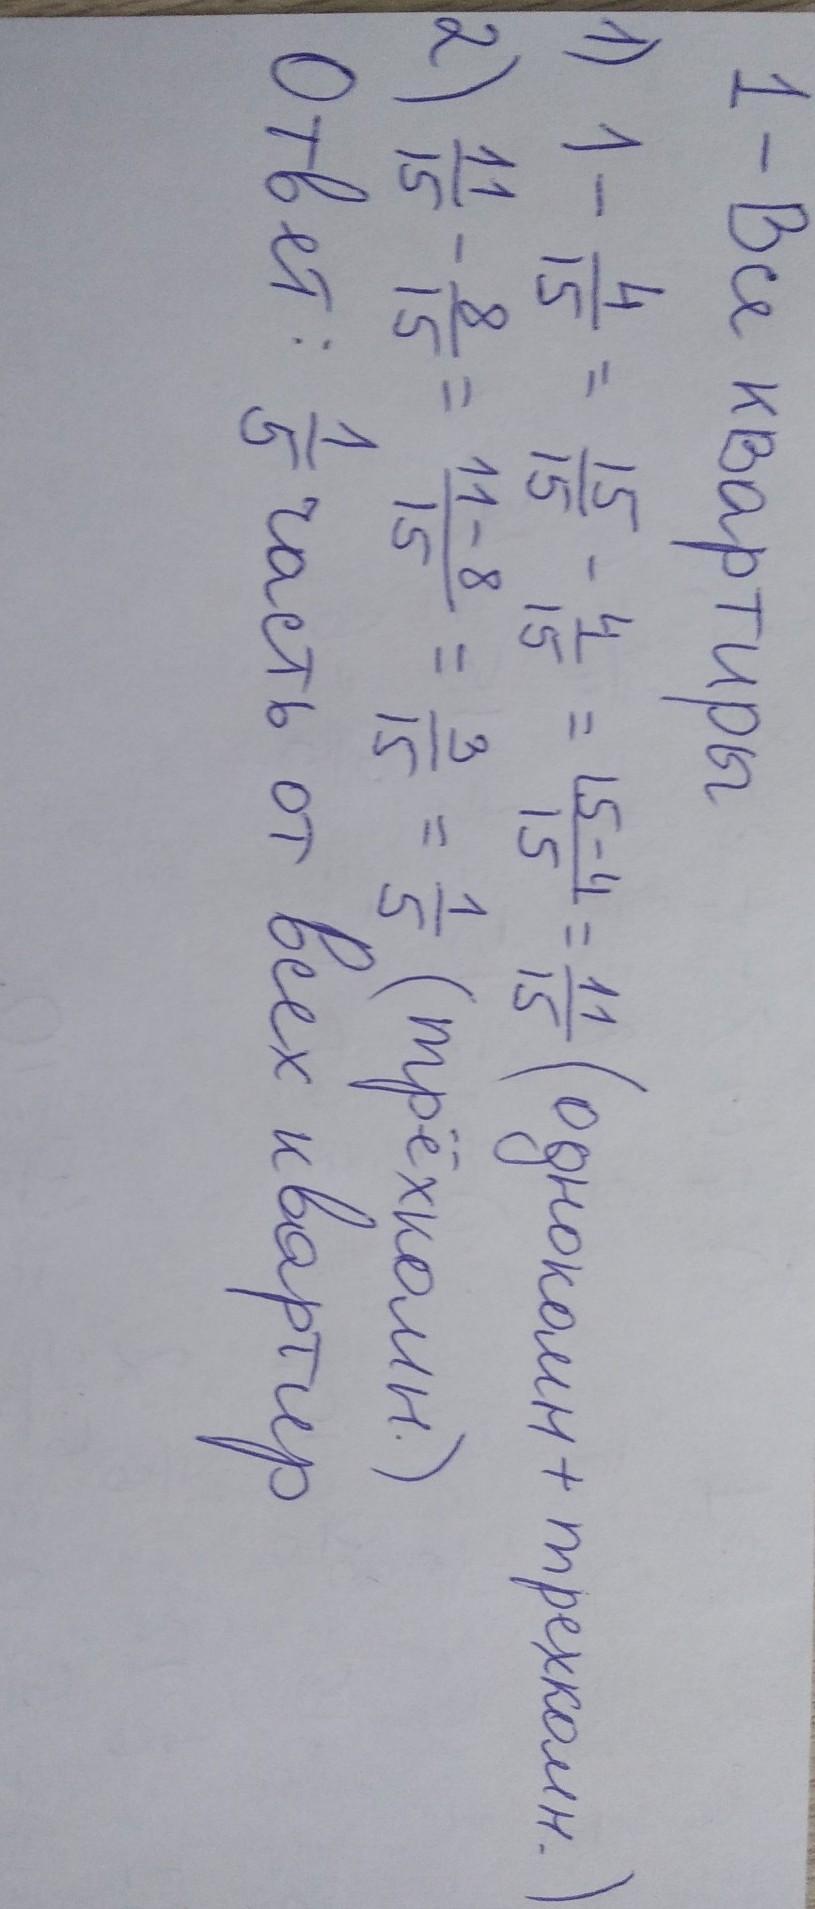 1 - Все квартиры
1) 1 - 4/15 = 15/15 - 4/15 = 15-4/15 = 11/15 (однокомн + трехкомн.)
2) 11/15 - 8/15 = 11-8/15 = 3/15 = 1/5 (трёхкомн.)
Ответ: 1/5 часть от всех квартир